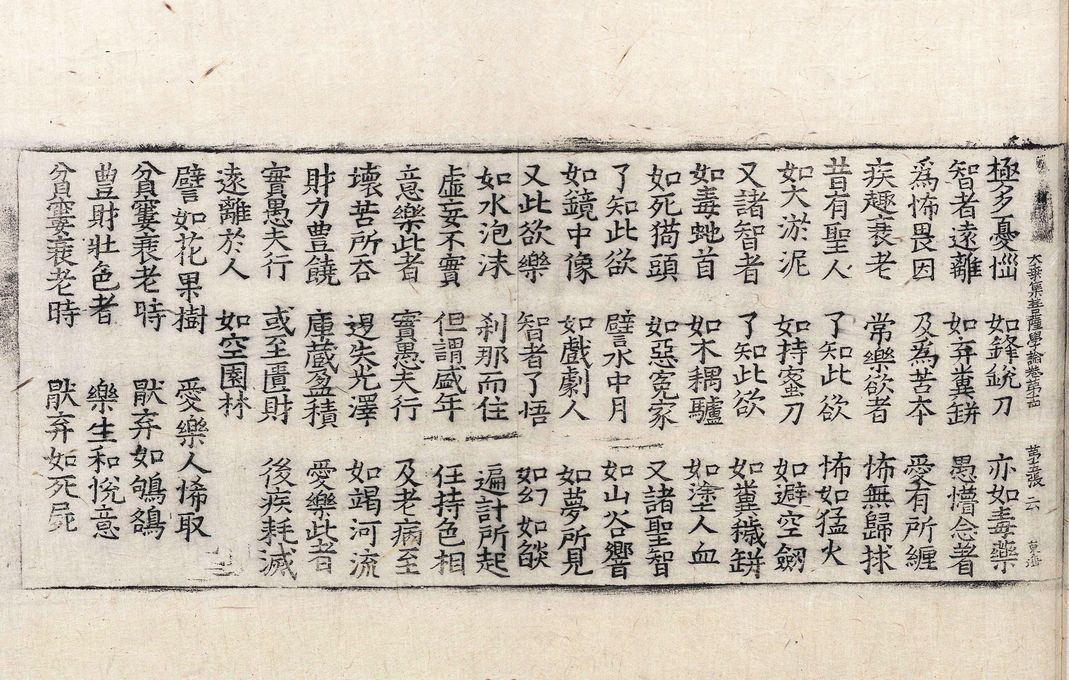 大乘集菩薩學論卷第十四 第五張 云
極多憂惱 如鋒銳刀 亦如毒藥
智者遠離 如弃糞缾 愚懵念著
爲怖畏因 及爲苦本 愛有所纏
疾趣衰老 常樂欲者 怖無歸救
昔有聖人 了知此欲 怖如猛火
如大淤泥 如持蜜刀 如避空劒
又諸智者 了知此欲 如糞穢缾
如毒虵首 如木耦驢 如塗人血
如死猫頭 如惡寃家 又諸聖智
了知此欲 譬水中月 如山谷響
如鏡中像 如戲劇人 如夢所見
又此欲樂 智者了悟 如幻如燄
如水泡沫 刹那而住 遍計所起
虛妄不實 但謂盛年 任持色相
意樂此者 實愚夫行 及老病至
壞苦所呑 遑失光澤 如竭河流
財力豊饒 庫蔵盈積 愛樂此者
實愚夫行 或至匱財 後疾耗減
遠離於人 如空園林
譬如花果樹 愛樂人悕取
貧窶衰老時 猒弃如鵂鶹
豊財壯色者 樂生和悅意
貧窶衰老時 猒弃如死屍